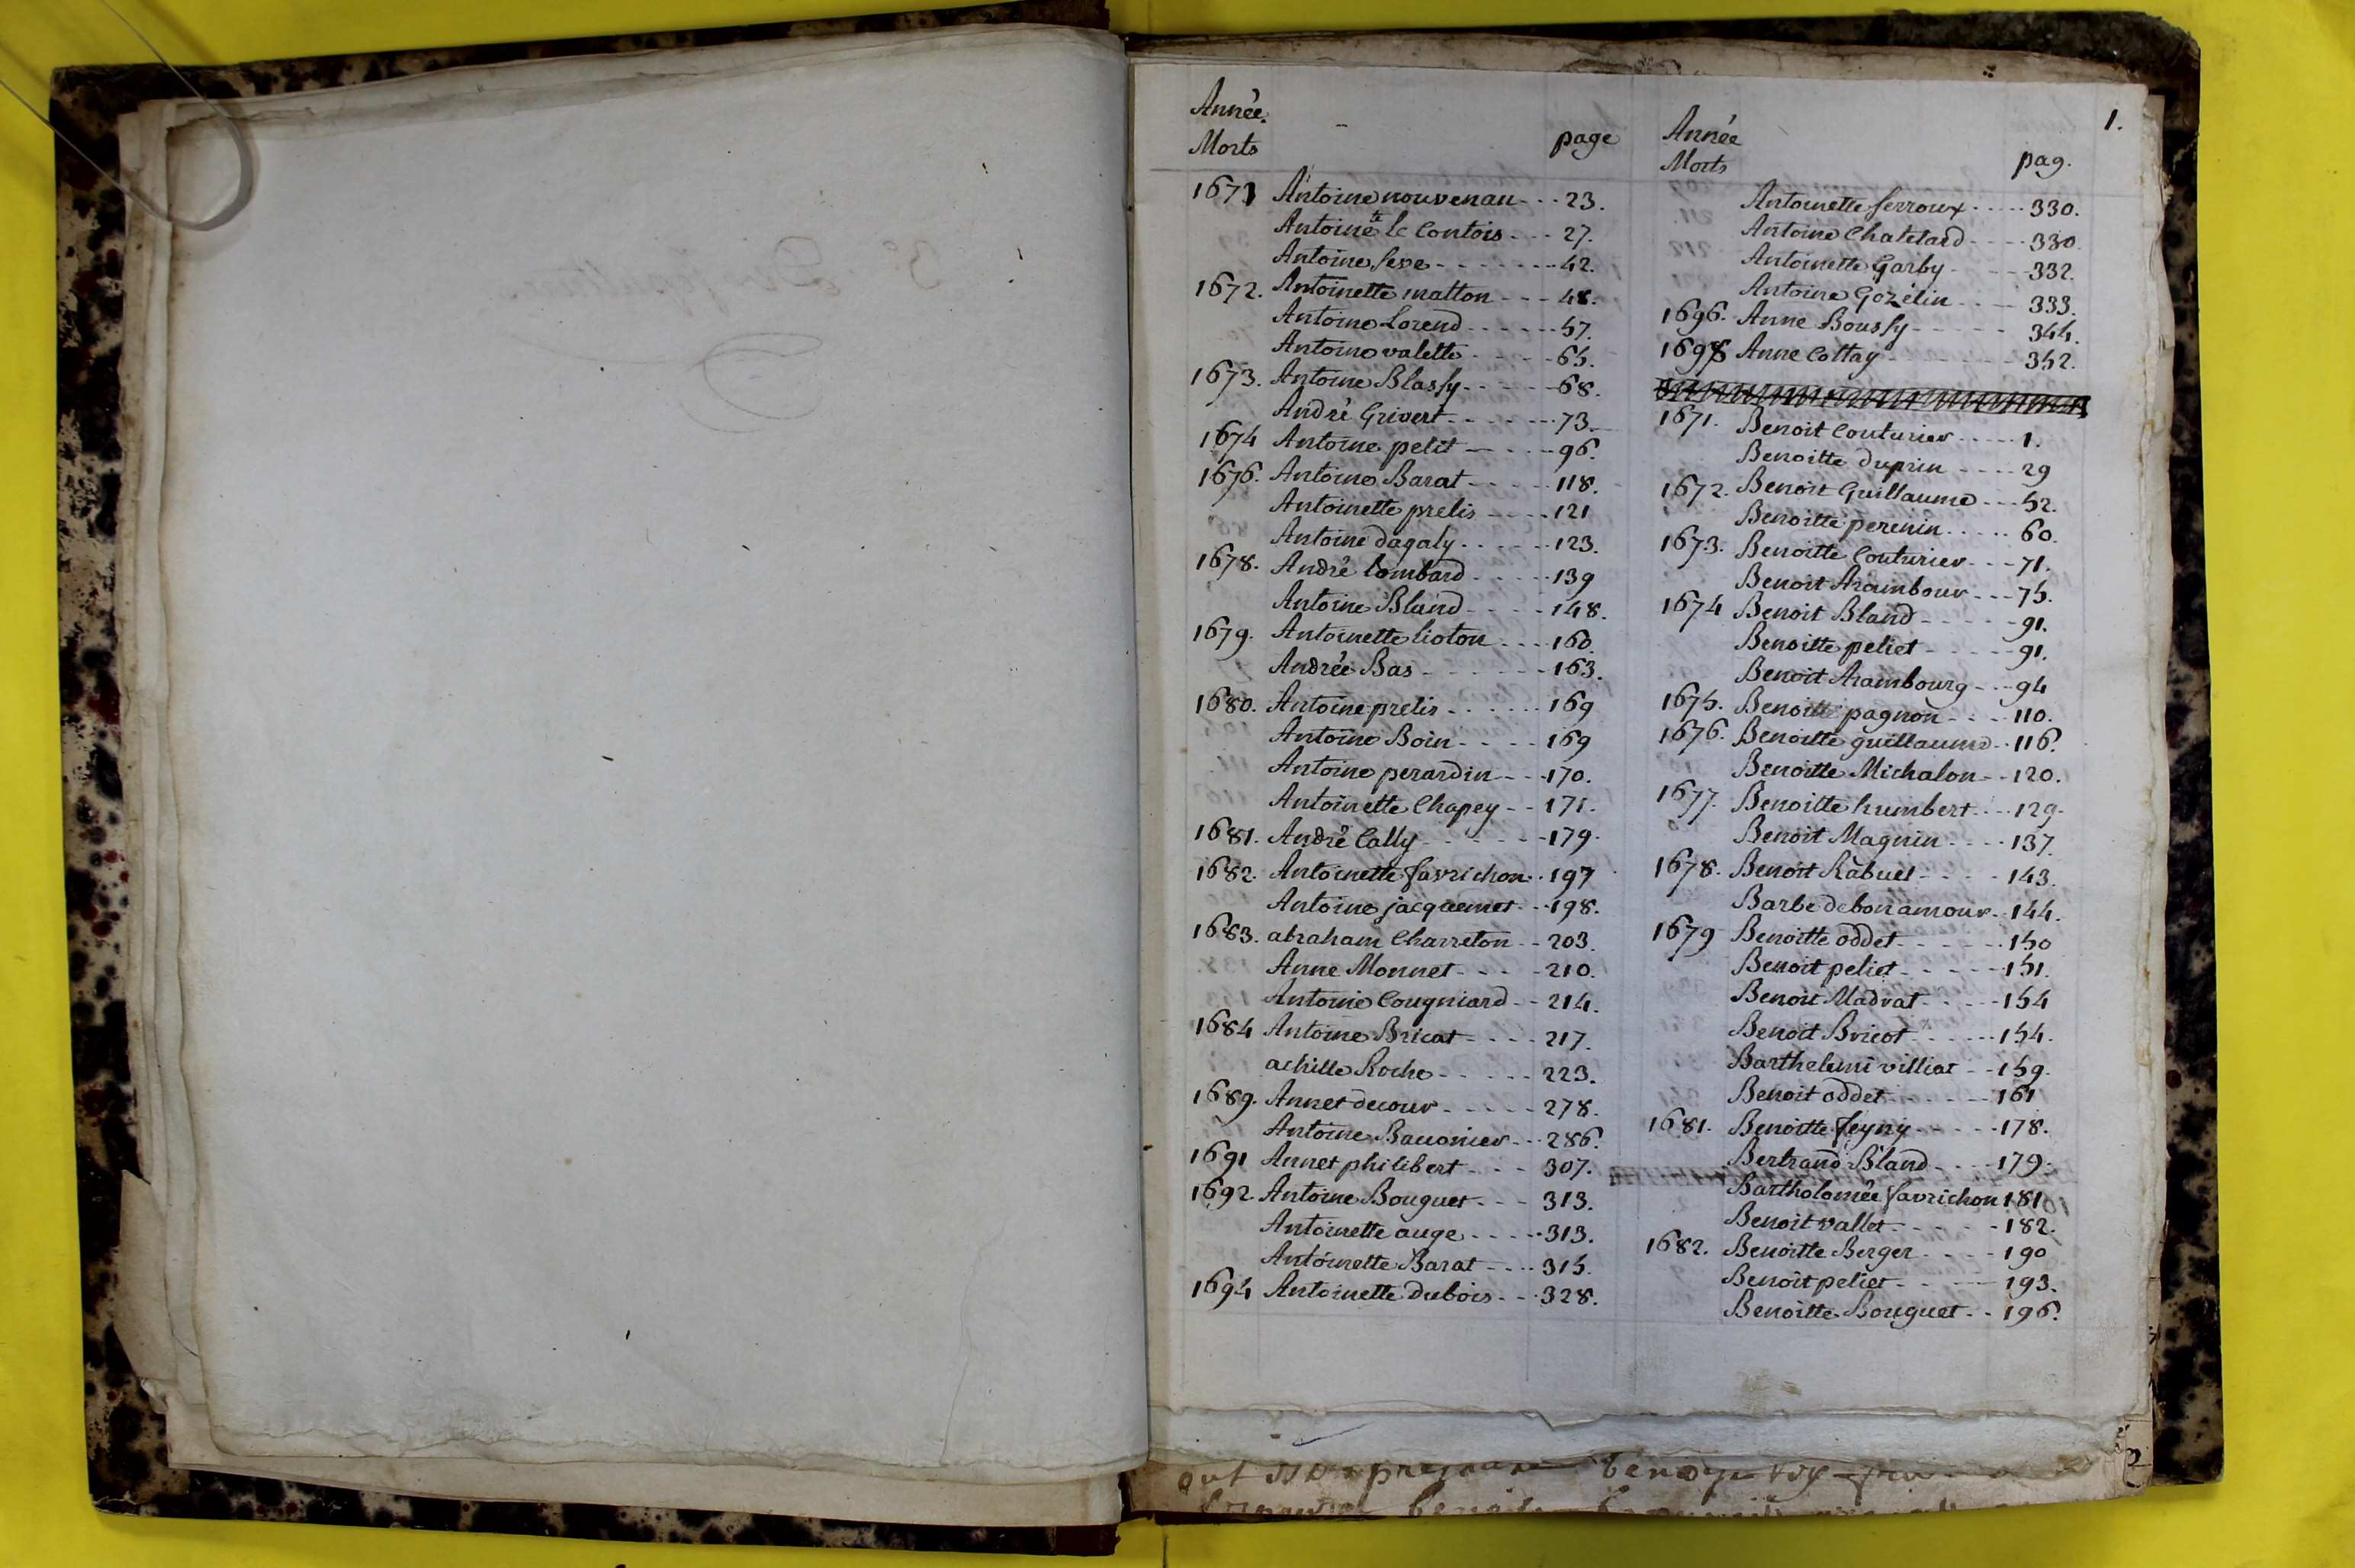 Année
Morts page
1671 Antoine nouvenau 23.
Antoine te le Contois 27.
Antoine seve 42.
1672. Antoinette matton 48.
Antoine Lorend 57.
Antoine valette 65.
1673. Antoine Blassy 68.
André Grivert 73
1674 Antoine petit 96.
1676. Antoine Barat 118.
Antoinette prelis 121
Antoine dagaly 123.
1678. André Lombard 139
Antoine Bland 148.
1679. Antoinette lioton 160.
Andrée Bas 163.
1680. Antoine prelis 169
Antoine Boin 169
Antoine perardin 170.
Antoinette Chapey 171.
1681. André Cally 179.
1682. Antoinette favrichon 197
Antoine jacquemet 198.
1683. abraham Charreton 203.
Anne Monnet 210.
Antoine Cougniard 214.
1684 Antoine Bricat 217.
achille Roche 223.
1689. Annet decour 278.
Antoine 286.
1691 Annet philibert 307.
1692. Antoine Bouguet 313.
Antoinette auge 313.
Antoinette Barat 315.
1694 Antoinette dubois 328.
1.
Année
Morts pag.
Antoinette ferroux 330.
Antoine Chatelard 330.
Antoinette Garby 332.
Antoine Gozelin 333.
1696. Anne Boussy 344.
1698 Anne Cottay 352.
1671. Benoit Couturier 1.
Benoitte duprin 29
1672. Benoit Guillaume 52.
Benoitte perenin 60.
1673. Benoitte Couturier 71.
Benoit Arambour 75.
1674 Benoit Bland 91.
Benoitte peliet 91.
Benoit Arambourg 94
1675. Benoitte pagnon 110.
1676. Benoitte guillaume 116.
Benoitte Michalon 120.
1677. Benoitte humbert 129.
Benoit Magnin 137.
1678. Benoit Rabuet 143.
Barbe debonamour 144.
1679 Benoitte oddet 150
Benoit peliet 151.
Benoit Madrat 154
Benoit Bricot 154.
Barthelemi villiat 159.
Benoit oddet 161
1681. Benoitte feyny 178.
Bertrand Bland 179.
Bartholomée favrichon 181
Benoit vallet 182.
1682. Benoitte Berger 190
Benoit peliet 193.
Benoitte Bouguet 196.